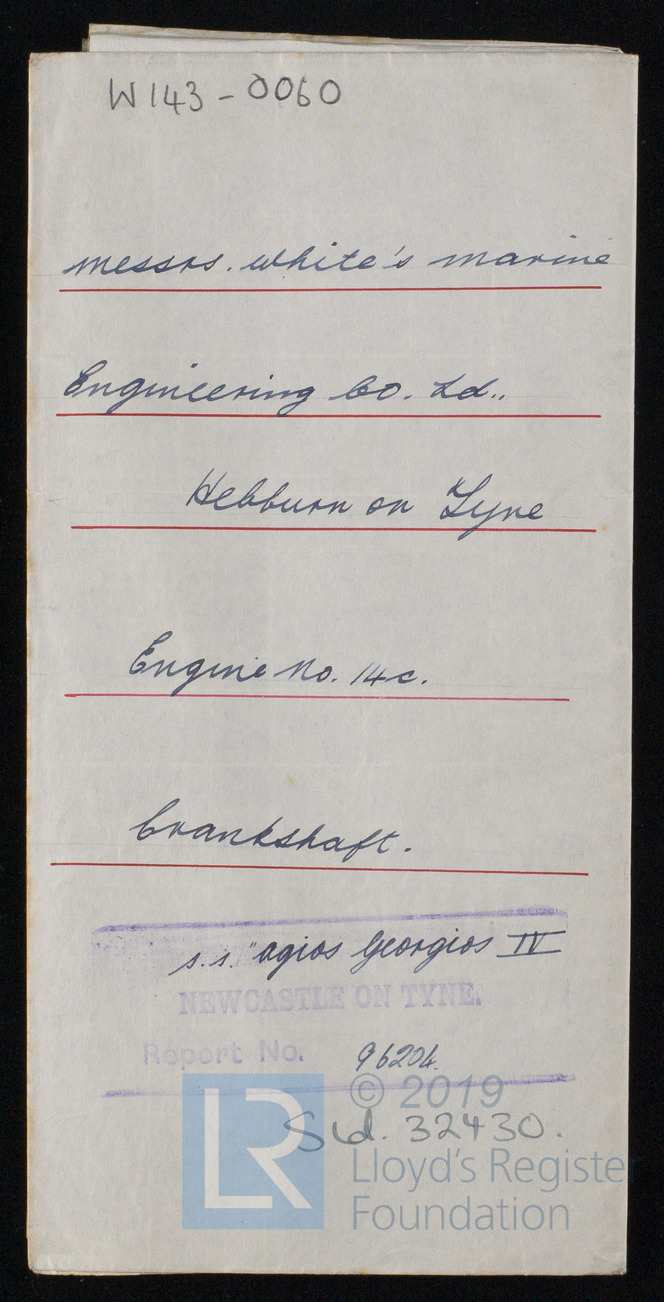 W143-0060
Messrs. White's Marine
Engineering Co. Ld.,
Hebburn on Tyne
Engine No. 14c.
Crankshaft.
s.s. "Agios Georgios IV
NEWCASTLE ON TYNE.
Report No. 96204.
© 2019
Sld. 32430.
LR
Lloyd's Register
Foundation